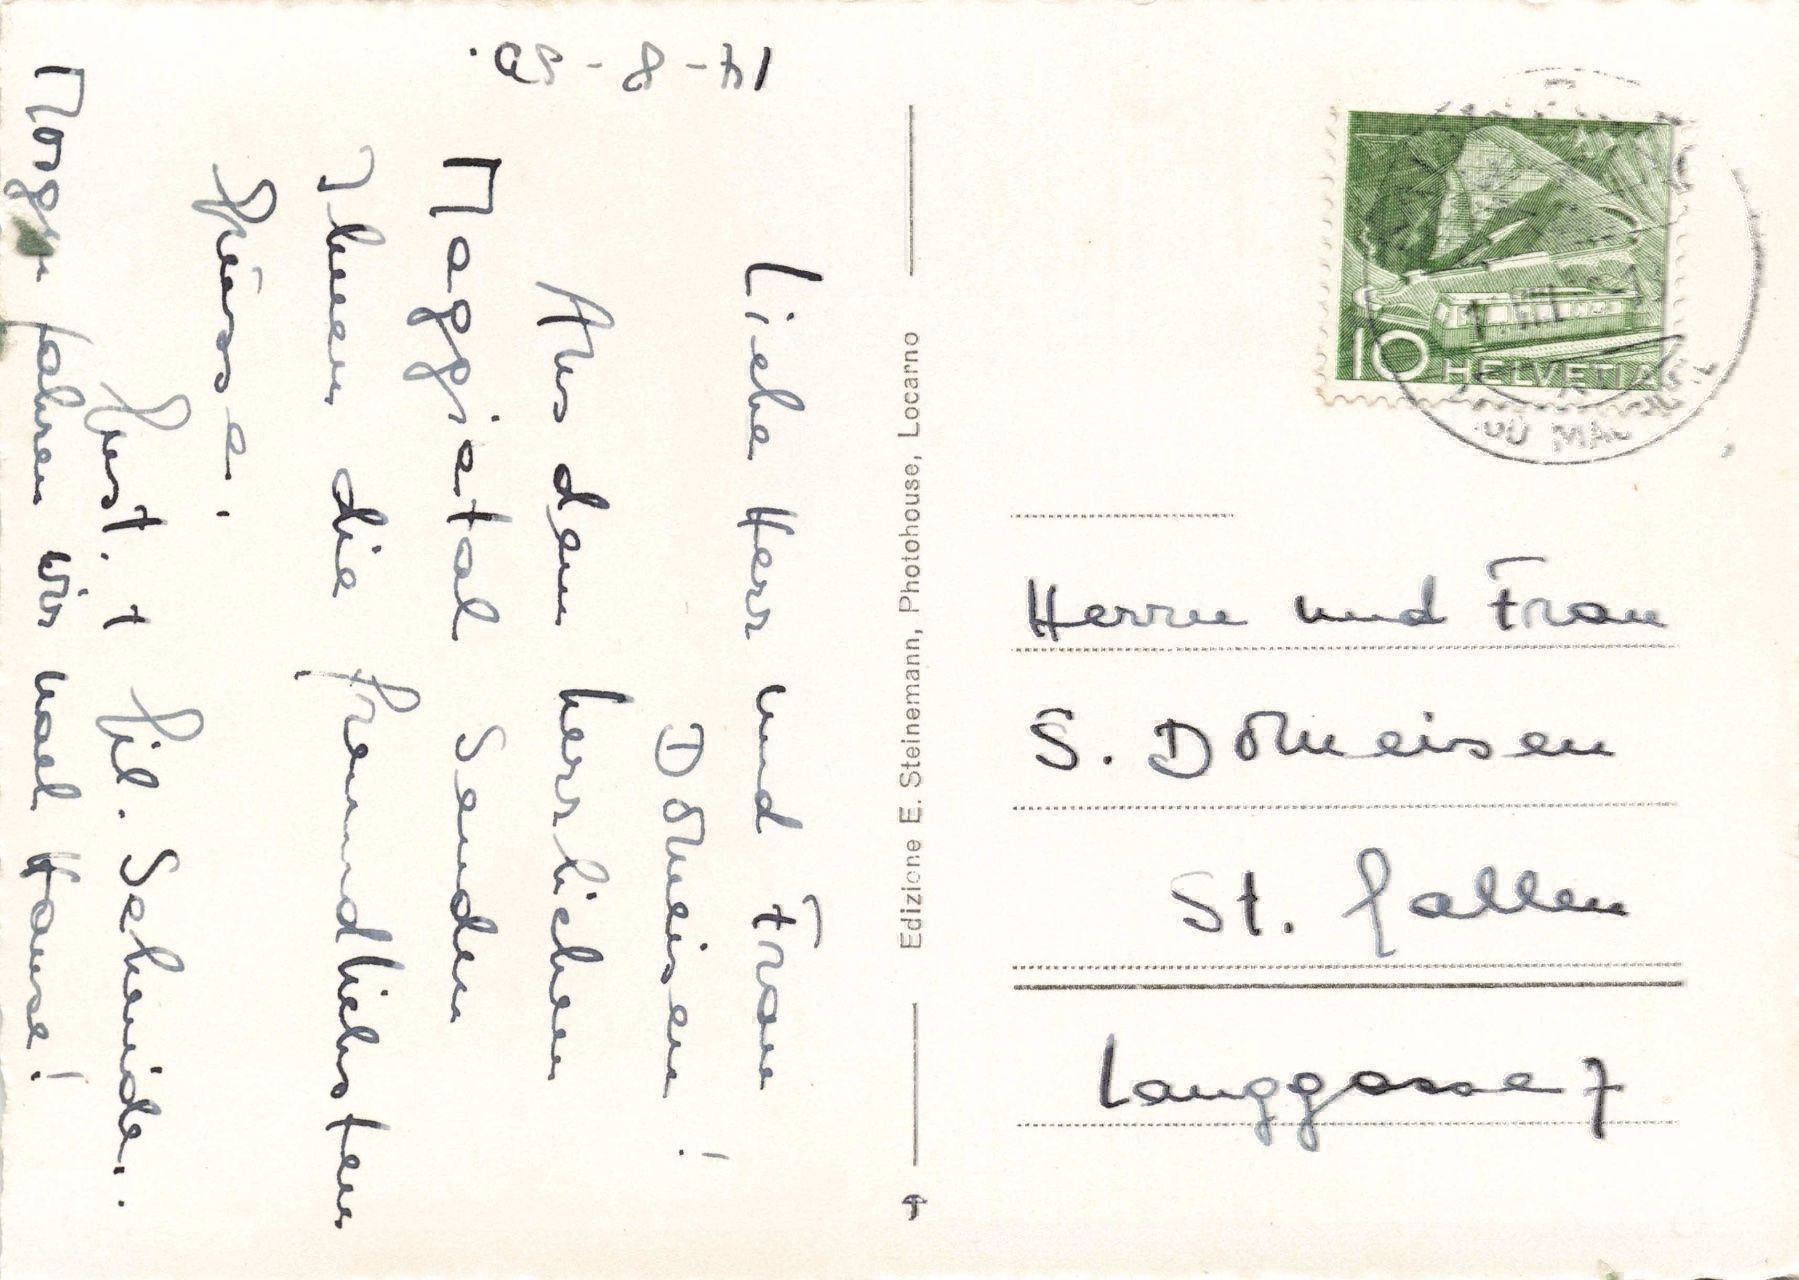 17-8-50.
Liebe Herr und Frau
Dömeisen!
Aus dem herrlichen
Maggiatal senden
Ihnen die freundlichsten
Grüsse.
Gust. + Schmide.
Morgen fahren wir nach Hause!
Edizione E. Steinemann, Photohouse, Locarno
10 HELVETIA
Herrn und Frau
S. Dömeisen
St. Gallen
Langgasse 7